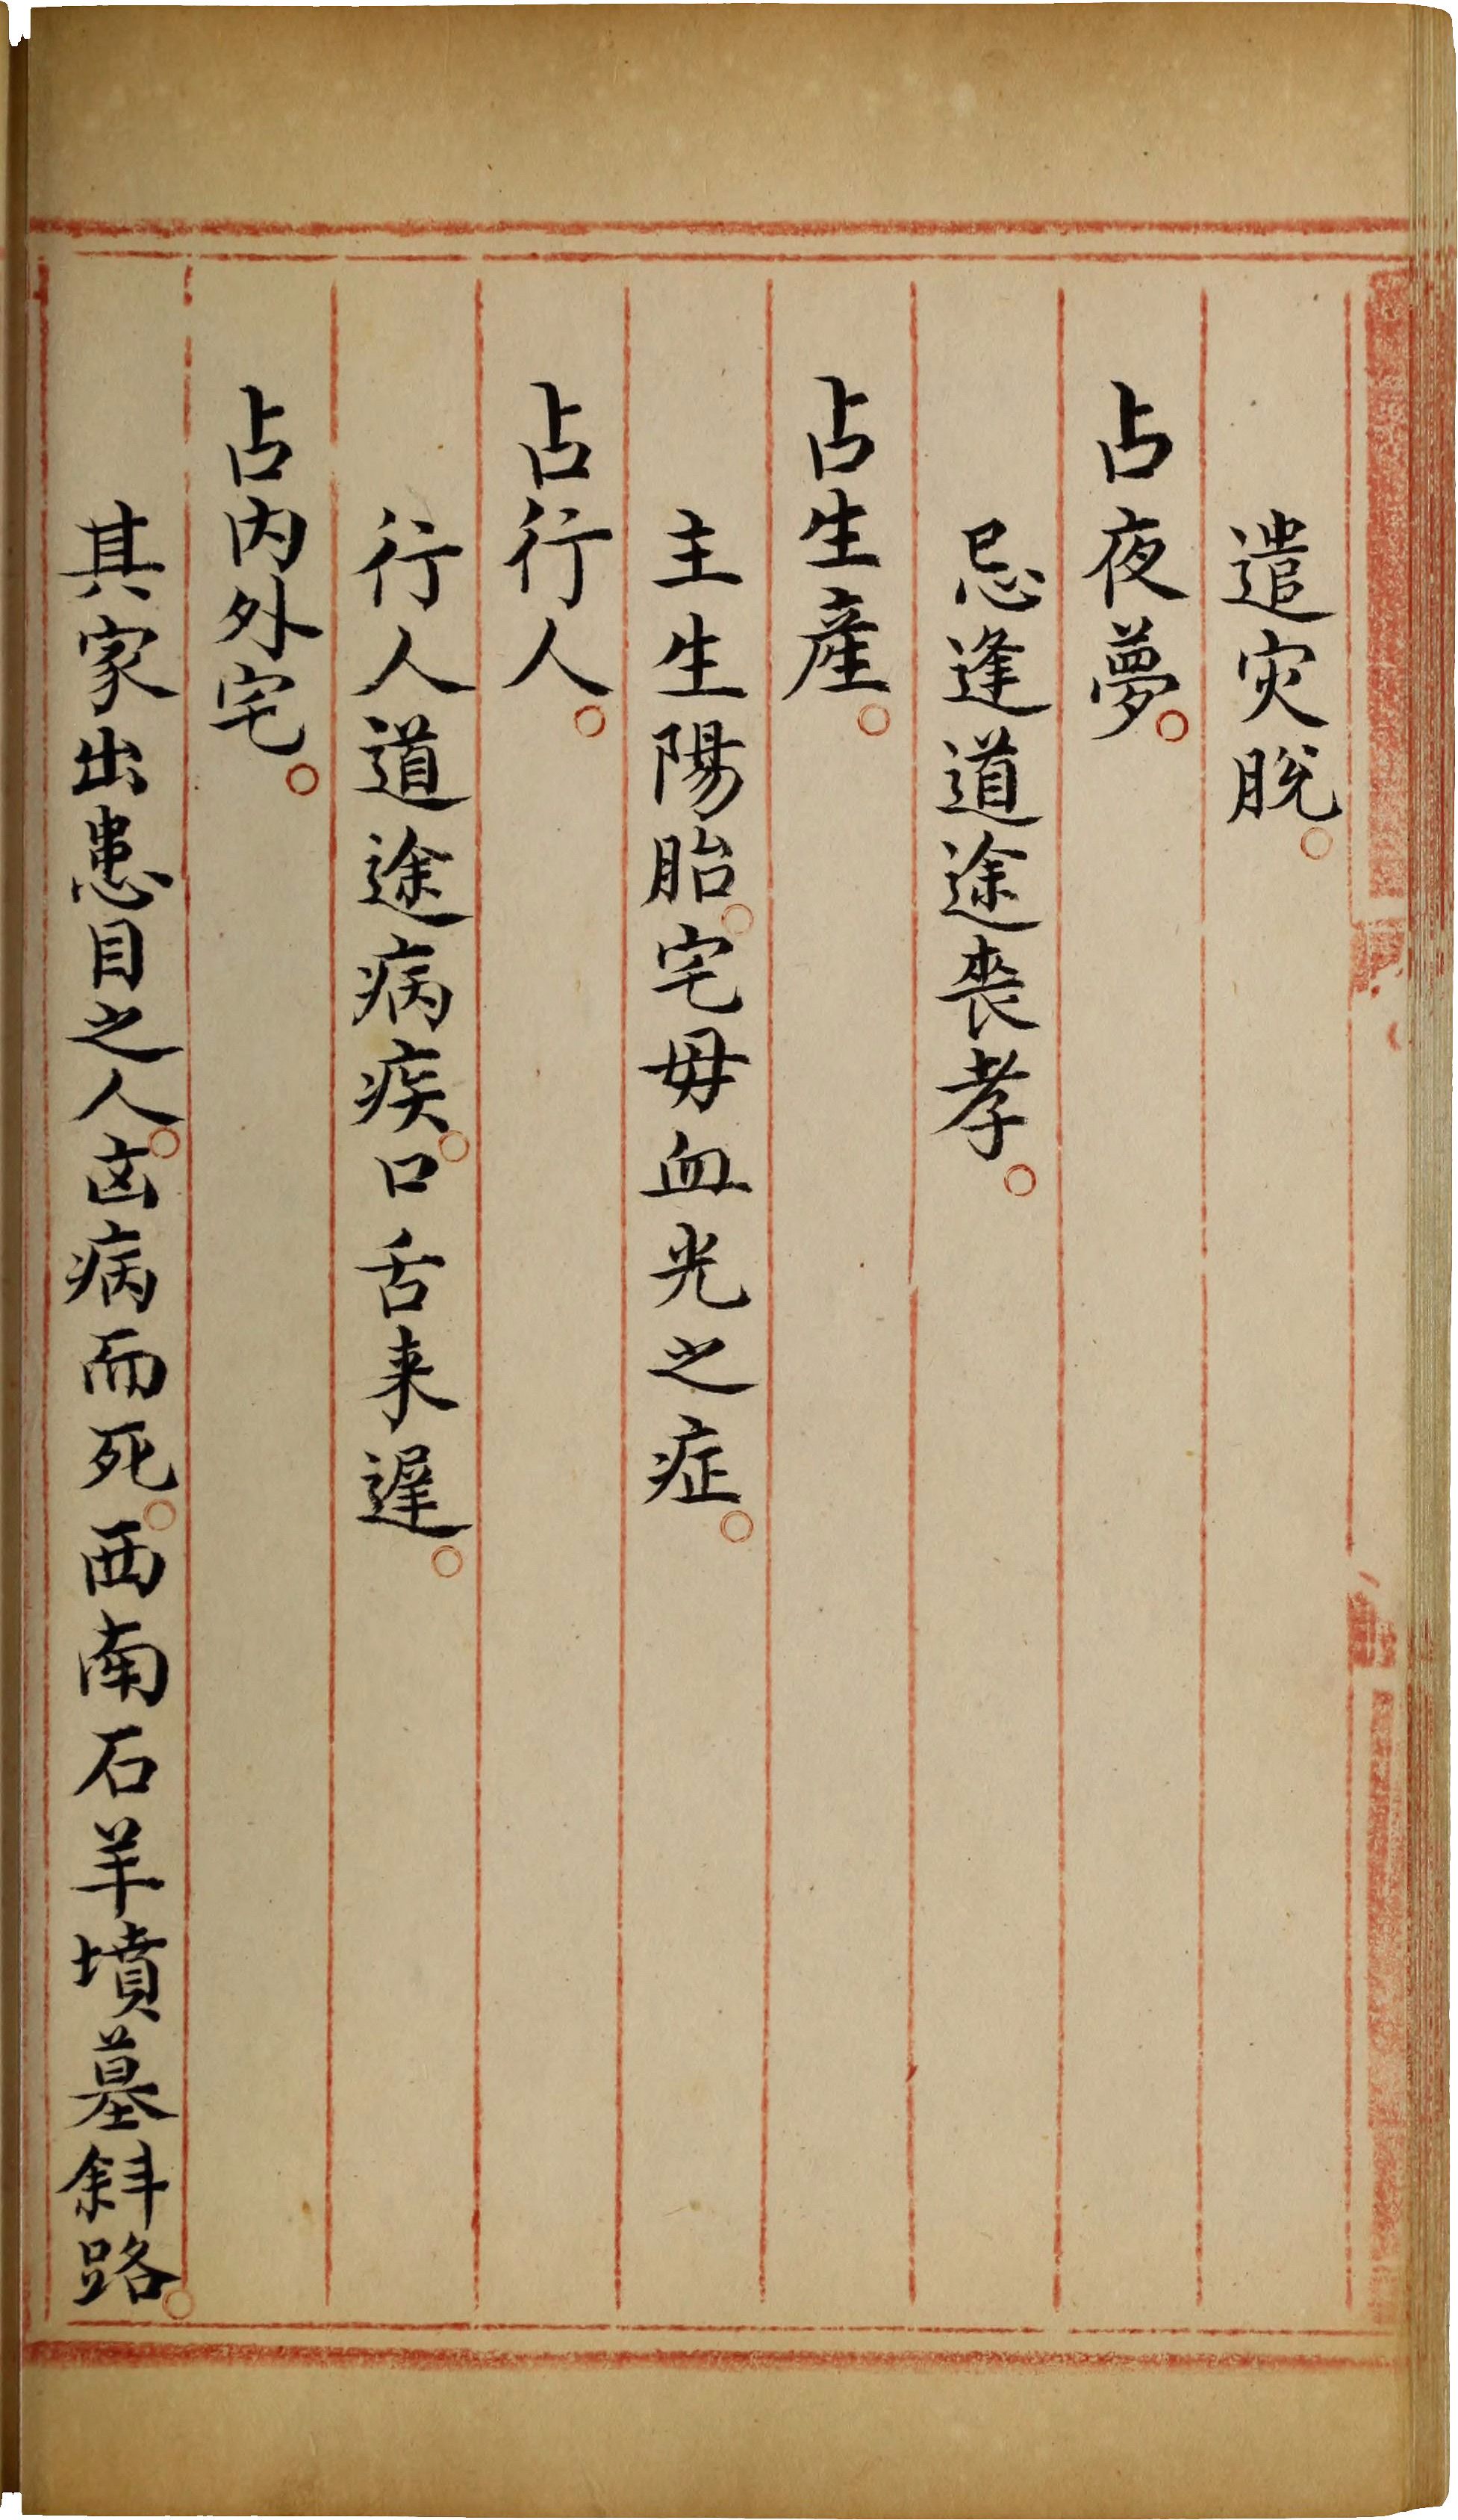 遣灾脫。
占夜夢。
忌逢道途喪孝。
占生産。
主生陽胎。宅母血光之症。
占行人。
行人道途病疾。口舌来遲。
占内外宅。
其家出患目之人。凶病而死。西南石羊墳墓斜路。